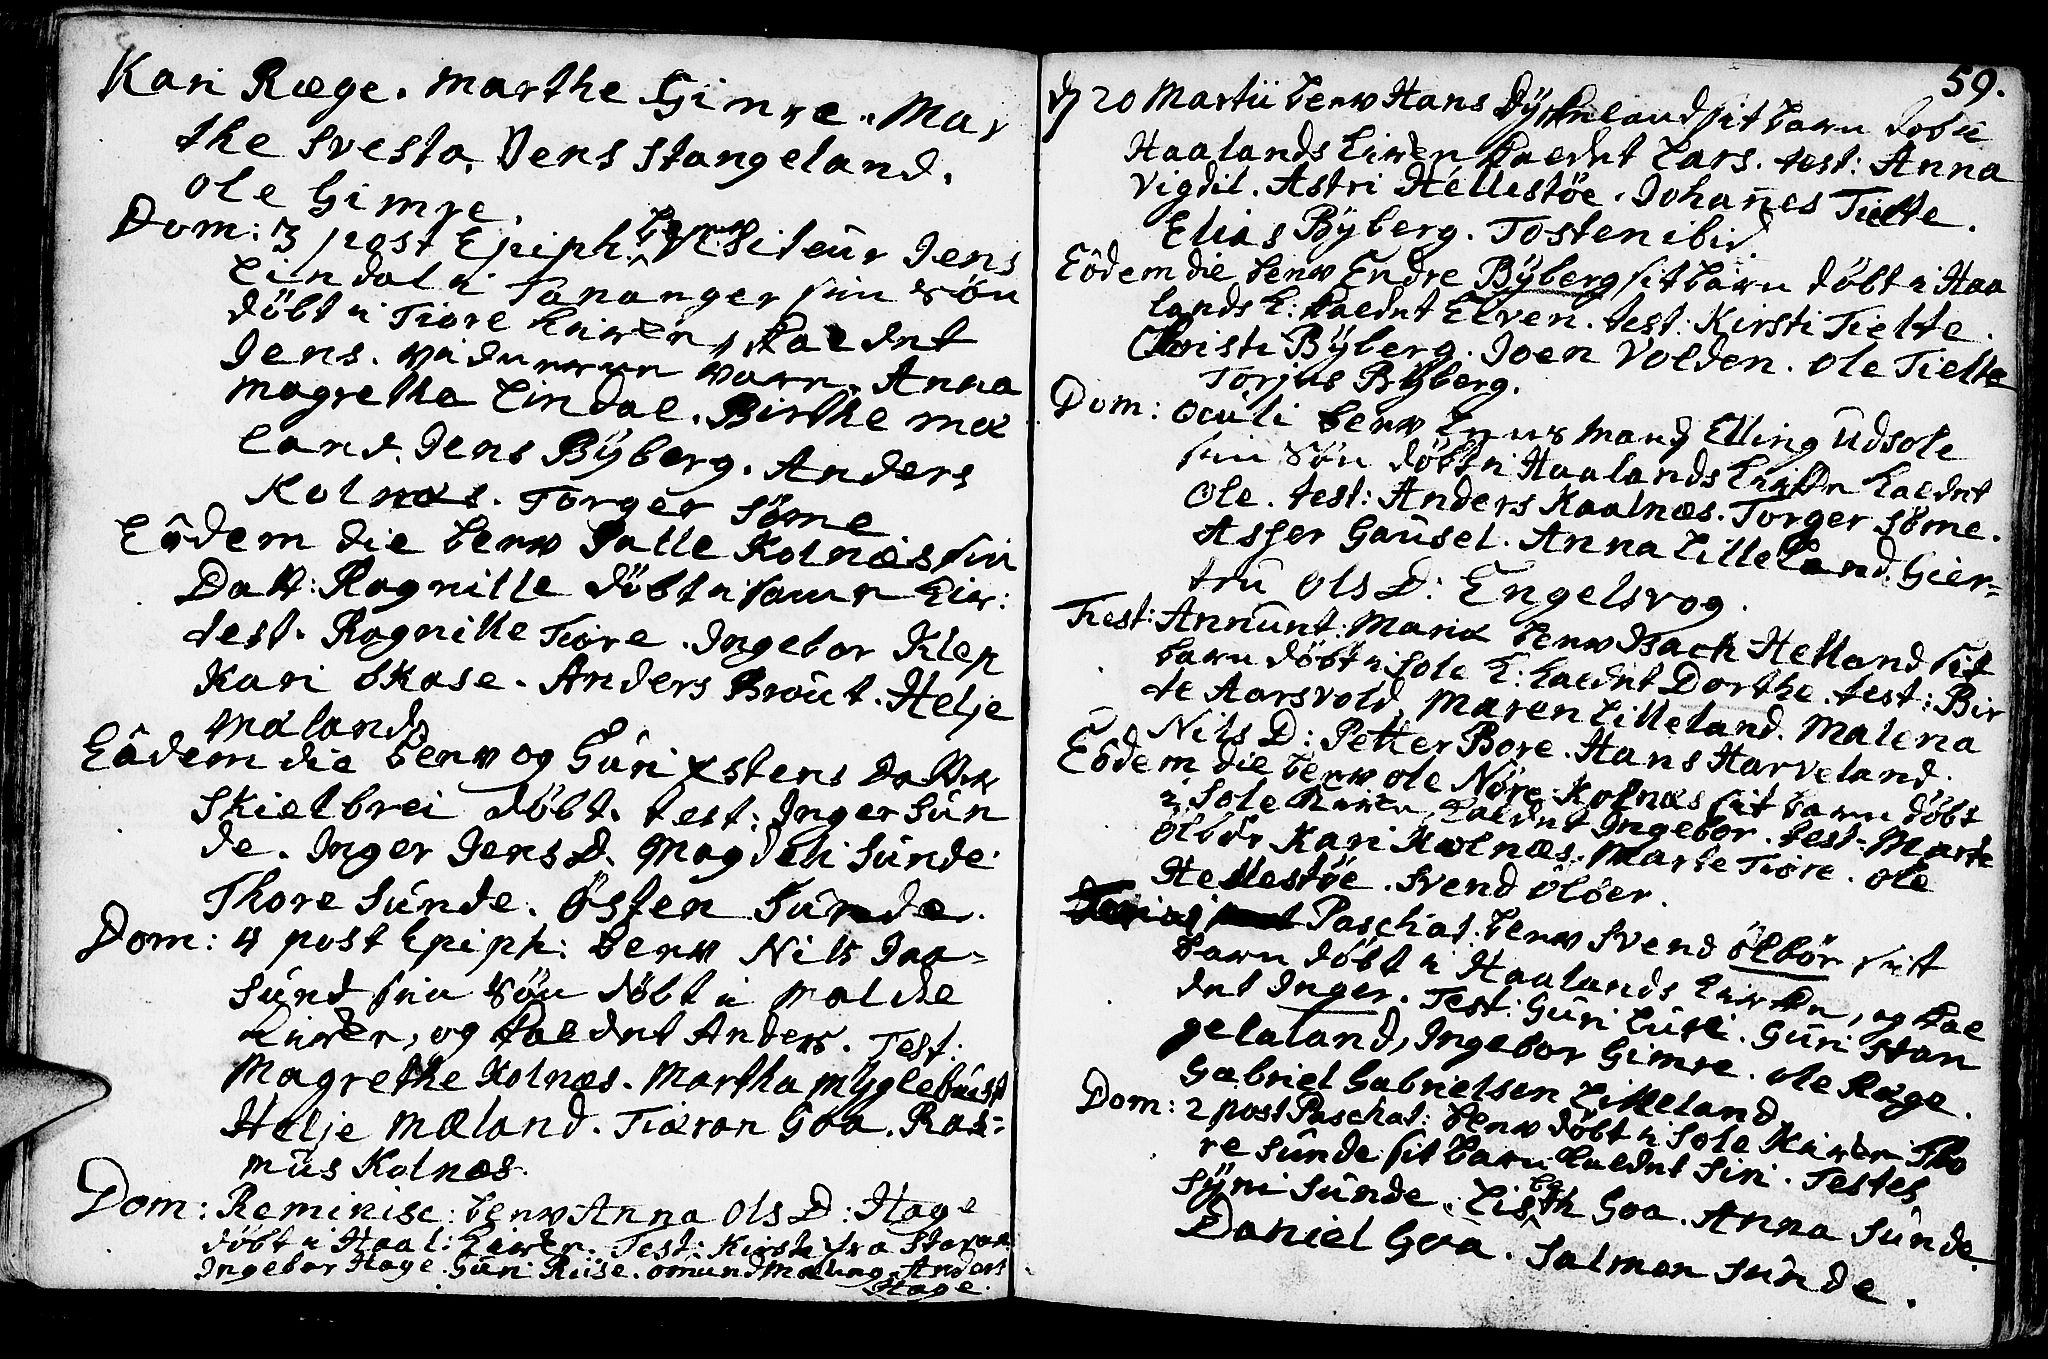 Kari Ræge. Marthe Gimre. Mar
the Svesta, Jens Stangeland.
Ole Gimre.
Dom: 3 post Epiph: blew Visiteur Jens
Lindal i Tananger sin Søn
döbt i Tiore kirken, kaldet
Jens. vidnerne vare. Anna
Magrethe Lindal. Birthe mæ
land. Jens Bÿberg. Anders
Kolnæs. Torger Sôme
Eôdem die blew Palle Kolnæs sin
Datt: Ragnille döbt i samme kir:
test. Ragnille Tiore. Ingebor Klep
Kari Skase. Anders Broüt. Helje
Mæland
Eôdem die blew og Gúri Östens Datter
Skielbrei döbt. test: Inger Sún
de. Inger Jens D. Magdeli Súnde
Thore Súnde. Östen Súnde.
Dom: 4 post Epiph: blew Nils Jaa-
súnd sin Søn döbt i Malde
kirken, og kaldet Anders. Test.
Magrethe Kolnæs. Martha Mÿglebúst
Helje Mæland. Tiæran Goa. Ras-
mús Kolnæs.
Dom: Reminisc: blew Anna Ols D: Hage
döbt i Haal: kirken. Test: Kirsti fra Stavan
Ingebor Hage. Gúri Riise. Omund Mæling. Anders
Hage.
59.
d 20 Martii blew Hans Dÿsteland sit barn dobt i
Haalands kirken kaldet Lars. test: Anna
Vigdil. Astri Hellestöe. Johanes Tielte.
Elias Bÿberg. Tosten ibid.
Eôdem die blew Endre Bÿberg sit barn döbt i Haa
lands k: kaldet Elven. test: Kirsti Tielte.
Christi Bÿberg. Joen Volden. Ole Tielte
Torjus Bÿberg.
Dom: Oculi blew Lens Mand Elling Údsole
sin Søn döbt i Haalands kirken kaldet
Ole. test: Anders Kaalnæs. Torger Sôme.
Asser Gaúsel. Anna Lilleland. Gier-
trú Ols D: Engelsvog.
Fest: Annúnt: Mariæ blew Isach Helland sit
barn döbt i Sole k: kaldet Dorthe. test: Bir
te Aarsvold, Maren Lilleland. Malena
Nils D: Petter Bore. Hans Harveland.
Eôdem die blew Ole Nöre Kolnæs sit barn döbt
i Sole kirken kaldet Ingebor. test: Marte
ölbör Kari Kolnæs. Marte Tiore. Ole
Hellestöe. Svend ölöer.
Paschat. blew Svend ölbör sitt
barn döbt i Haalands kirken, og kal
det Inger. Test: Gúri Lúsi. Gúri Stan
gelaland, Ingebor Gimre. Ole Ræge.
Gabriel Gabrielsen Lilleland
Dom: 2 post Paschat: blew döbt i Sole kirken Tho
re Súnde sit barn kaldet Siri. Testes
Sÿni Súnde. Lisbeth Goa. Anna Súnde.
Daniel Goa. Salmon Súnde.